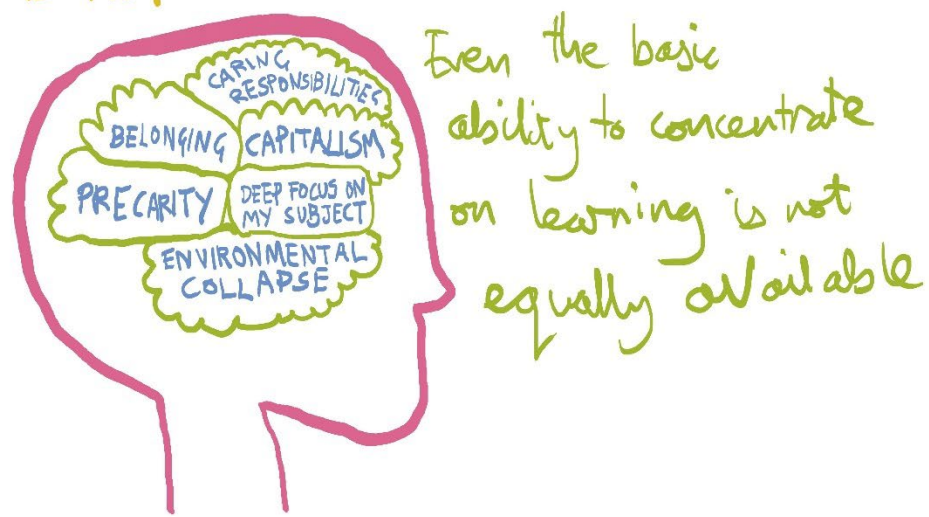 CARING
RESPONSIBILITIES
BELONGING
CAPITALISM
PRECARITY
DEEP FOCUS ON
MY SUBJECT
ENVIRONMENTAL
COLLAPSE
Even the basic
ability to concentrate
on learning is not
equally available